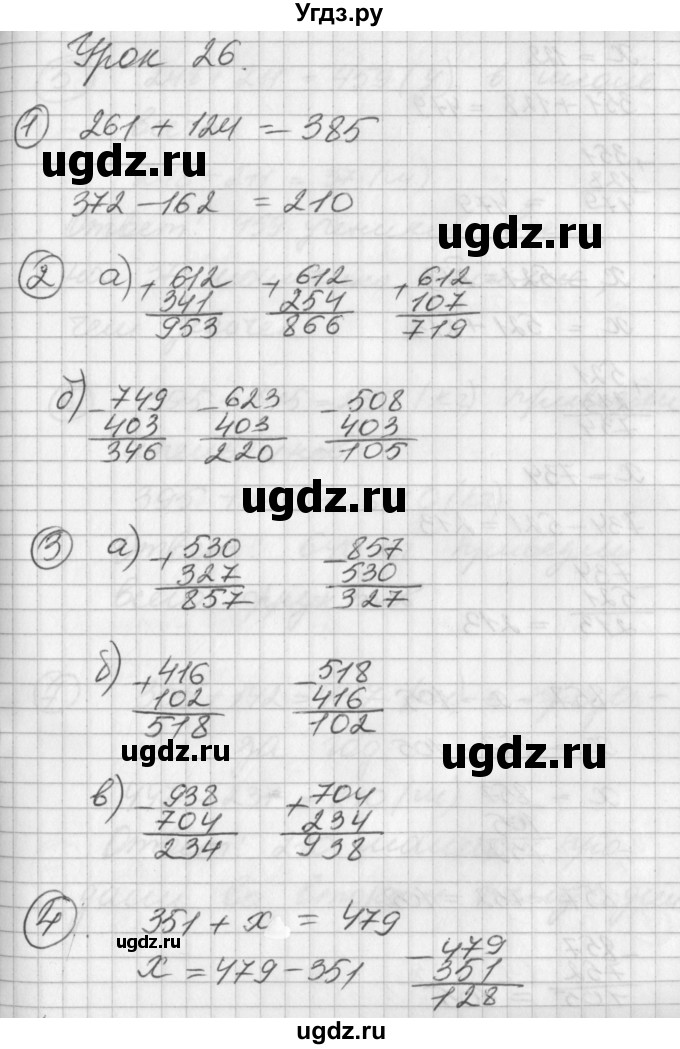 Угдз.ру
Урок 26.
① 261 + 124 = 385
ugdz.ru
372 - 162 = 210
ugdz.ru
② а) + 612 + 612 + 612
341 254 107
953 866 719
б) - 749 - 623 - 508
403 403 403
346 220 105
ugdz.ru
③ а) + 530 - 857
327 530
857 327
б) + 416 - 518
102 416
518 102
ugdz.ru ugdz.ru
в) - 938 + 704
704 234
234 938
④. 351 + x = 479
ugdz.ru
x = 479 - 351 - 479
351
128
ugdz.ru